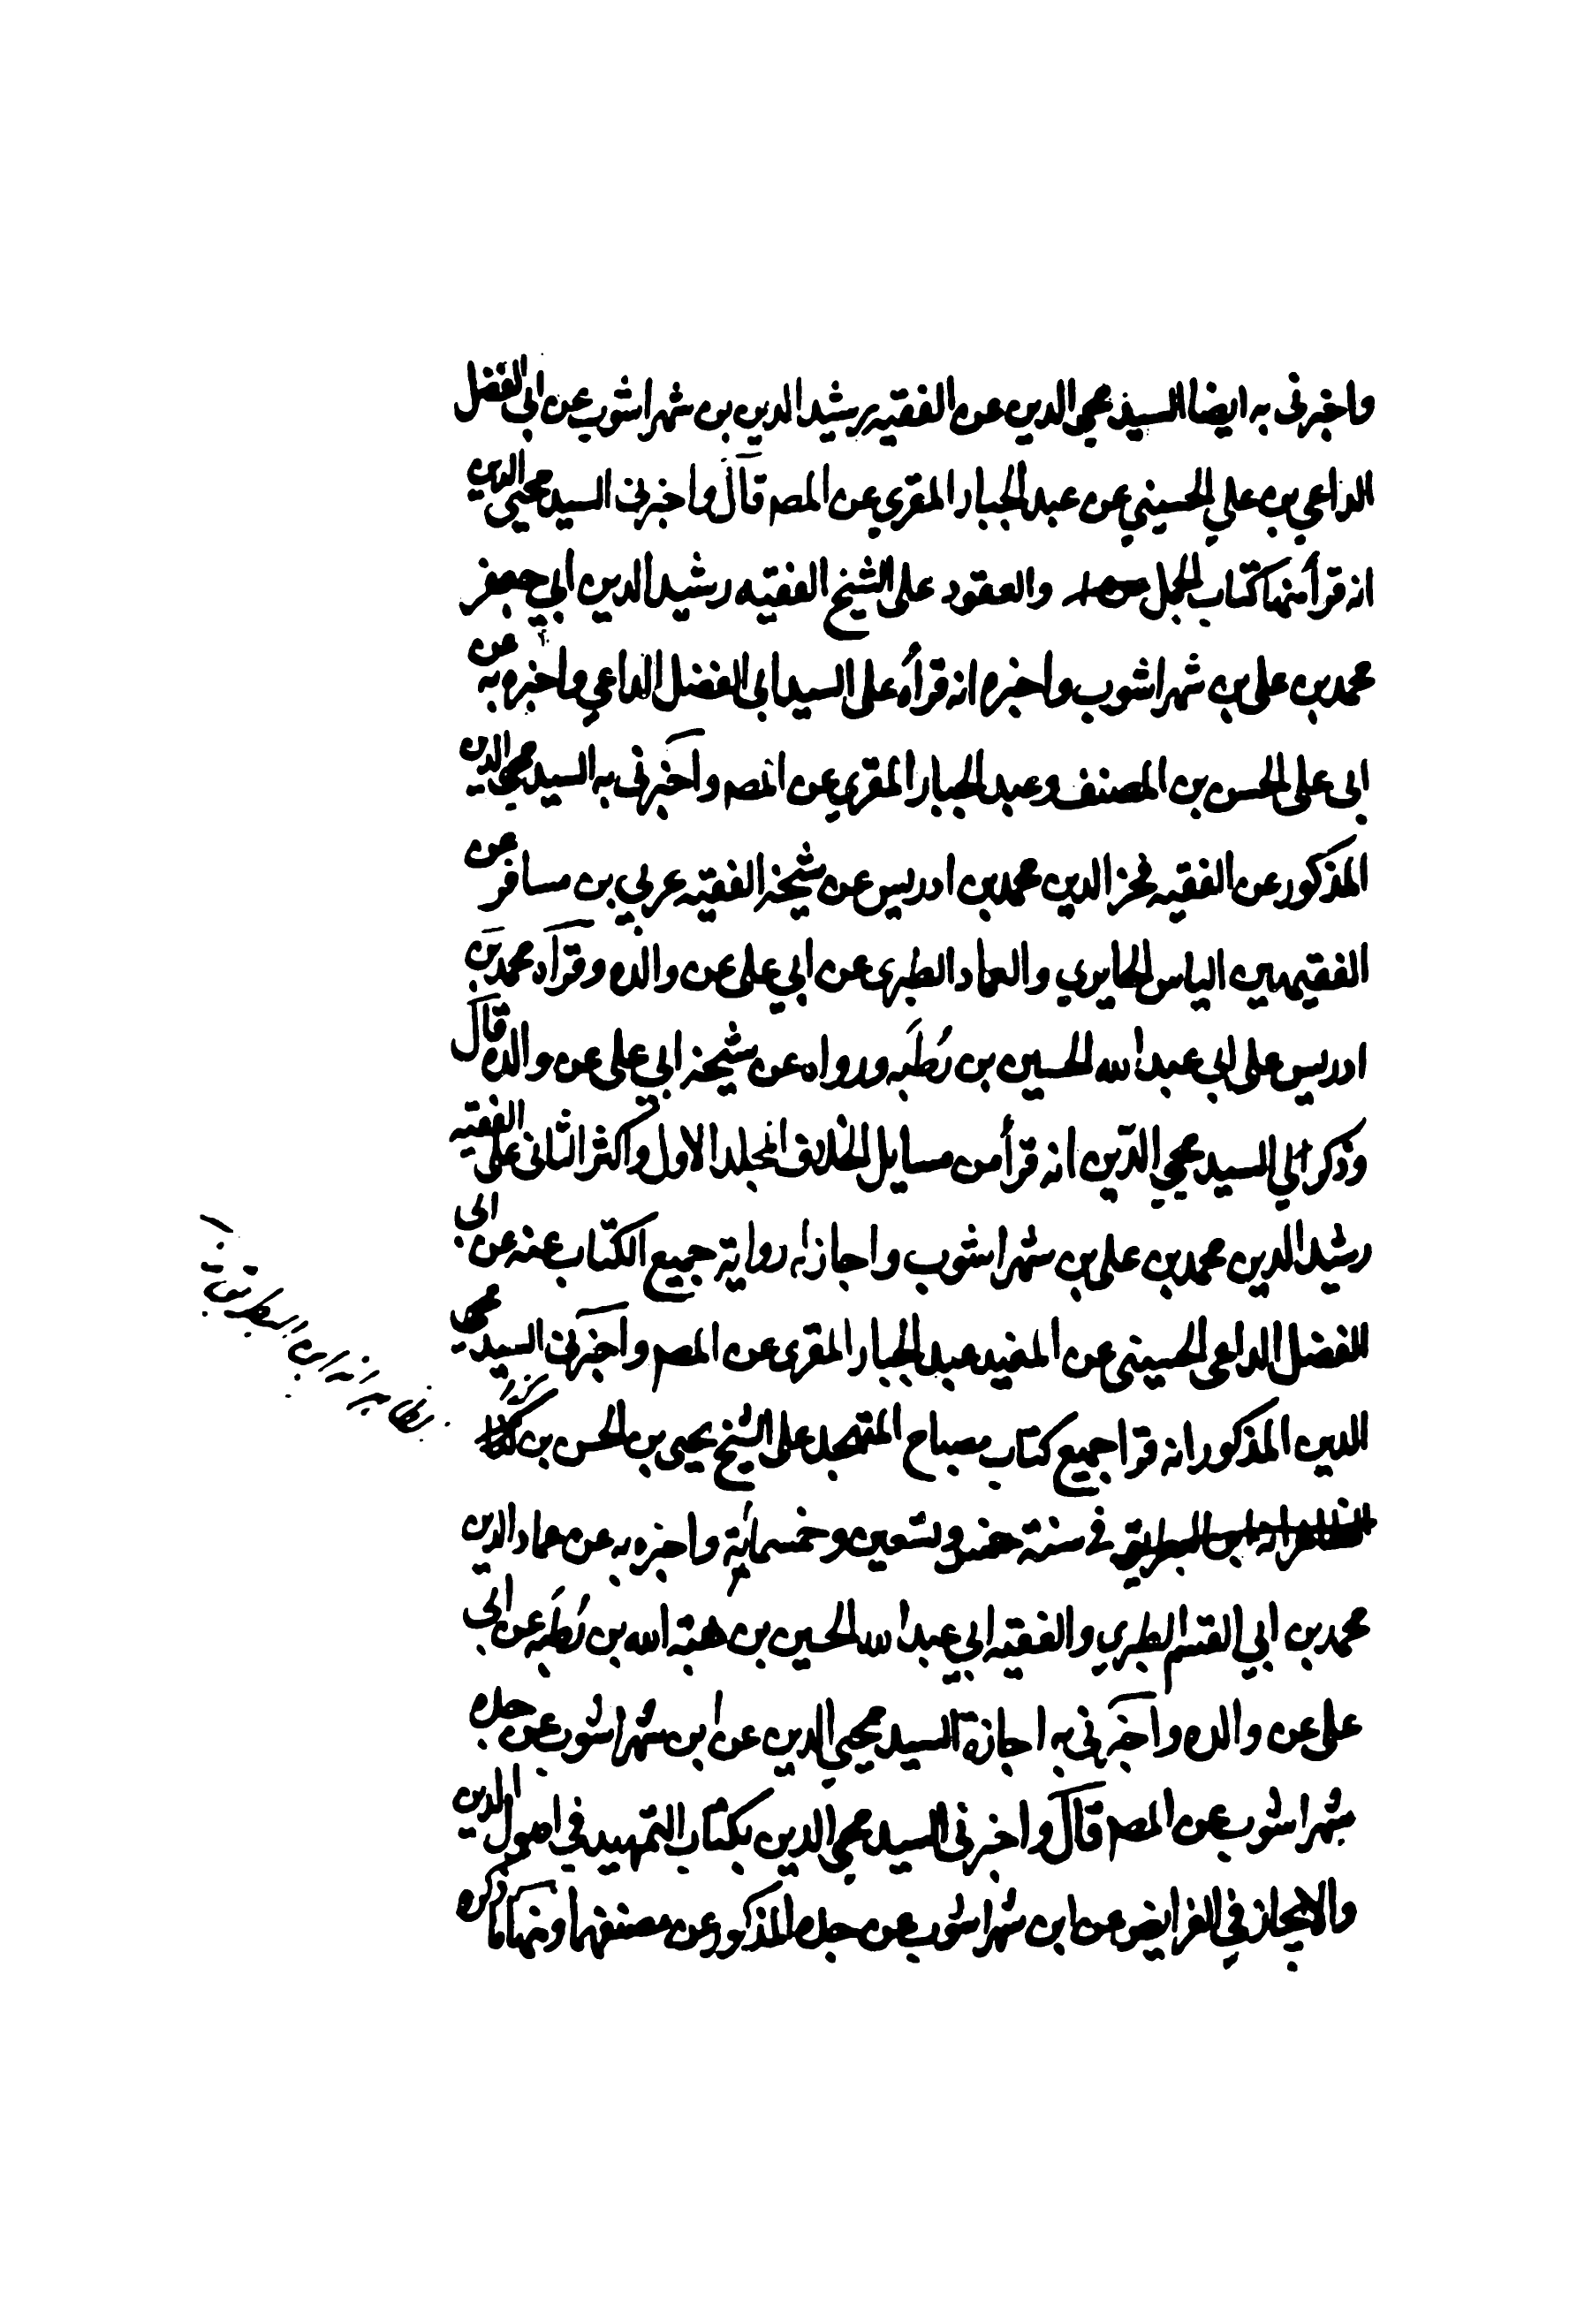 واخبرنى به ايضا السيد محيى الدين عن الفقيه رشيد الدين بن شهراشوب عن ابى الفضل
الداعي بن علي الحسيني عن عبد الجبار المقري عن المصـ قال واخبرنى السيد محيى الدين
انه قرأ منها كتاب الجمل والعقود على الشيخ الفقيه رشيد الدين ابي جعفر
محمد بن على بن شهراشوب واخبره انه قرأه على السيد ابى الفضل الداعي واخبره به عن
ابى على الحسن بن المصنف وعبد الجبار المقري عن المصـ واخبرنى به السيد محيى الدين
المذكور عن الفقيه فخر الدين محمد بن ادريس عن شيخه الفقيه عربي بن مسافر عن
الفقيهين الياس الحايري والعماد الطبرى عن ابي على عن والده وقرأه محمد بن
ادريس على ابى عبد الله الحسين بن رُطَبه ورواه عن شيخه ابي على عن والده قال
وذكر لي السيد محيي الدّين انه قرأ من مسايل الخلاف المجلد الاول واكثر الثانى على الفقيه
رشيد الدين محمد بن على بن شهراشوب واجاز له رواية جميع الكتاب عنه عن ابى
الفضل الداعى الحسينى عن المفيد عبد الجبار المقرى عن المصـ واخبرنى السيد محيى
الدين المذكور انه قرا جميع كتاب مصباح المتهجد على الشيخ يحيى بن الحسن بن
الظاهر انه ابن البطريق في سنة وتسعين وخمسمائة واخبره به عن عماد الدين
محمد بن ابي القسم الطبري والفقيه ابي عبد الله الحسين بن هبة الله بن رُطَبه عن ابى
على عن والده واخبرنى به اجازة السيد محيي الدين عن ابن شهراشوب عن جده
شهراشوب عن المصـ قال واخبرنى السيد محيى الدين بكتاب التمهيد في اصول الدين
والايجاز في الفرايض عن ابن شهراشوب عن جده المذكور عن مصنفهما ومنها ما ذكره
الظاهر انه ابن البطريق